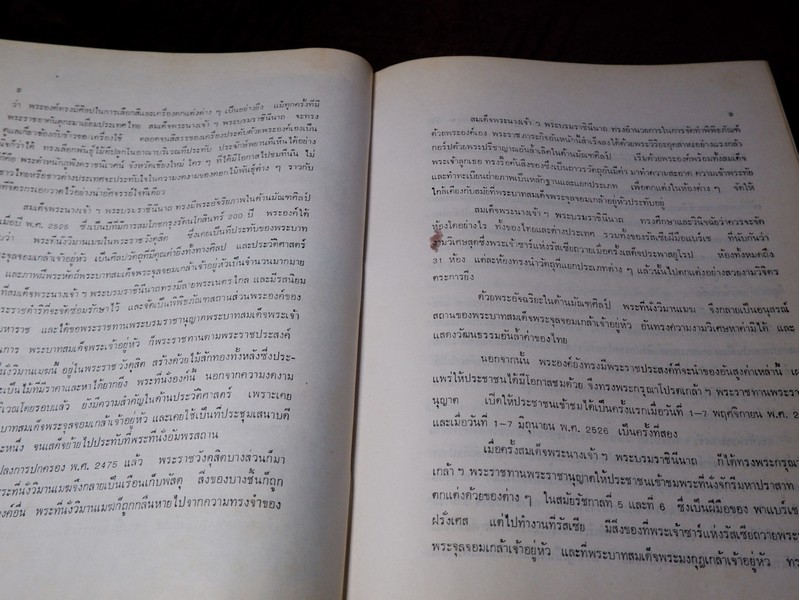 ๘
ว่า พระองค์ทรงมีศิลปในการเลือกสีและเครื่องตกแต่งต่าง ๆ เป็นอย่างยิ่ง แม้ทุกครั้งที่มี
พระราชอาคันตุกะมาเยือนประเทศไทย สมเด็จพระนางเจ้า ฯ พระบรมราชินีนาถ จะทรง
พระองค์เองเป็น
ก็ว่าได้ ทรงเลือกพันธุ์ไม้ที่ปลูกในอาณาบริเวณที่ประทับ
คือ พระตำหนักภูพิงคราชนิเวศน์ จังหวัดเชียงใหม่ ใคร ๆ ที่ได้มีโอกาสไปชมที่นั่น ไม่
าวไทยหรือชาวต่างประเทศจะประทับใจในความงดงามของดอกไม้พันธุ์ต่าง ๆ ราวกับ
สมเด็จพระนางเจ้า ฯ พระบรมราชินีนาถ ทรงมีพระอัจริยภาพในด้านมัณฑศิลป์
เมื่อปี พ.ศ. 2525 ซึ่งเป็นปีที่มีการสมโภชกรุงรัตนโกสินทร์ 200 ปี พระองค์ได้
ว่า พระที่นั่งวิมานเมฆในพระราชวังดุสิต ซึ่งเคยเป็นที่ประทับของพระบาท
จุลจอมเกล้าเจ้าอยู่หัว เป็นศิลปวัตถุที่มีคุณค่ายิ่งทั้งทางศิลป และประวัติศาสตร์
และภาพฝีพระหัตถ์พระบาทสมเด็จพระจุลจอมเกล้าเจ้าอยู่หัวเป็นจำนวนมากมาย
ที่สมเด็จพระนางเจ้า ฯ พระบรมราชินีนาถทรงมีสายพระเนตรไกล และมีรสนิยม
ราชดำริที่จะจัดซ่อมรักษาไว้ และจัดเป็นพิพิธภัณฑสถานส่วนพระองค์ของ
มหาราช และได้ขอพระราชทานพระบรมราชานุญาตพระบาทสมเด็จพระเจ้า
นการ พระบาทสมเด็จพระเจ้าอยู่หัว ก็พระราชทานตามพระราชประสงค์
งวิมานเมฆนี้ อยู่ในพระราชวังดุสิต สร้างด้วยไม้สักทองทั้งหลังซึ่งประ-
ะเป็นไม้ที่มีราคาและหาได้ยากยิ่ง พระที่นั่งองค์นี้ นอกจากความงดงาม
ริเวณโดยรอบแล้ว ยังมีความสำคัญในด้านประวัติศาสตร์ เพราะเคย
บาทสมเด็จพระจุลจอมเกล้าเจ้าอยู่หัว และเคยใช้เป็นที่ประชุมเสนาบดี
ะหนึ่ง จนเสด็จย้ายไปประทับที่พระที่นั่งอัมพรสถาน
ปลงการปกครอง พ.ศ. 2475 แล้ว พระราชวังดุสิตบางส่วนก็มา
ระที่นั่งวิมานเมฆจึงกลายเป็นเรือนเก็บพัสดุ สิ่งของบางชิ้นก็ถูก
งค์อื่น พระที่นั่งวิมานเมฆก็ถูกกลืนหายไปจากความทรงจำของ
๙
สมเด็จพระนางเจ้า ฯ พระบรมราชินีนาถ ทรงอำนวยการในการจัดทำพิพิธภัณฑ์
ด้วยพระองค์เอง พระราชภารกิจอันหนักนี้สำเร็จลงได้ด้วยพระวิริยะอุตสาหะอย่างแรงกล้า
กอร์ปด้วยพระปรีชาญาณอันล้ำเลิศในด้านมัณฑศิลป์ เริ่มด้วยพระองค์พร้อมทั้งสมเด็จ
พระเจ้าลูกเธอ ทรงรื้อค้นสิ่งของซึ่งเป็นถาวรวัตถุอันมีค่า มาทำความสะอาด ความเข้าพระทัย
และทำทะเบียนถ่ายภาพเป็นหลักฐานและแยกประเภท เพื่อตกแต่งในห้องต่าง ๆ จัดให้
ใกล้เคียงกับสมัยที่พระบาทสมเด็จพระจุลจอมเกล้าอยู่หัวประทับอยู่
สมเด็จพระนางเจ้า ฯ พระบรมราชินีนาถ ทรงศึกษาและวินิจฉัยว่าควรจะจัด
ห้องใดอย่างไร ทั้งของไทยและต่างประเทศ รวมทั้งของรัสเซียฝีมือแบร์เช ที่นับกันว่า
งามวิเศษสุดซึ่งพระเจ้าซาร์แห่งรัสเซียถวายเมื่อครั้งเสด็จประพาสยุโรป ห้องทั้งหมดถึง
31 ห้อง แต่ละห้องทรงนำวัตถุที่แยกประเภทต่าง ๆ แล้วนั้นไปตกแต่งอย่างสวยงามวิจิตร
ตระการยิ่ง
ด้วยพระอัจฉริยะในด้านมัณฑศิลป์ พระที่นั่งวิมานเมฆ จึงกลายเป็นอนุสรณ์
สถานของพระบาทสมเด็จพระจุลจอมเกล้าเจ้าอยู่หัว อันทรงความงามวิเศษหาค่ามิได้ และ
แสดงวัฒนธรรมอันล้ำค่าของไทย
นอกจากนั้น พระองค์ยังทรงมีพระราชประสงค์ที่จะนำของอันสูงค่าเหล่านี้ เผ
แพร่ให้ประชาชนได้มีโอกาสชมด้วย จึงทรงพระกรุณาโปรดเกล้า ฯ พระราชทานพระรา
นุญาต เปิดให้ประชาชนเข้าชมได้เป็นครั้งแรกเมื่อวันที่ 1-7 พฤศจิกายน พ.ศ. 2
และเมื่อวันที่ 1-7 มิถุนายน พ.ศ. 2526 เป็นครั้งที่สอง
เมื่อครั้งสมเด็จพระนางเจ้า ฯ พระบรมราชินีนาถ ก็ได้ทรงพระกรุณา
เกล้า ฯ พระราชทานพระราชานุญาตให้ประชาชนเข้าชมพระที่นั่งจักรีมหาปราสาท
ตกแต่งด้วยของต่าง ๆ ในสมัยรัชกาลที่ 5 และที่ 6 ซึ่งเป็นฝีมือของ ฟาแบร์เช
ฝรั่งเศส แต่ไปทำงานที่รัสเซีย มีสิ่งของที่พระเจ้าซาร์แห่งรัสเซียถวายพระบ
พระจุลจอมเกล้าเจ้าอยู่หัว และที่พระบาทสมเด็จพระมงกุฎเกล้าเจ้าอยู่หัว ทร